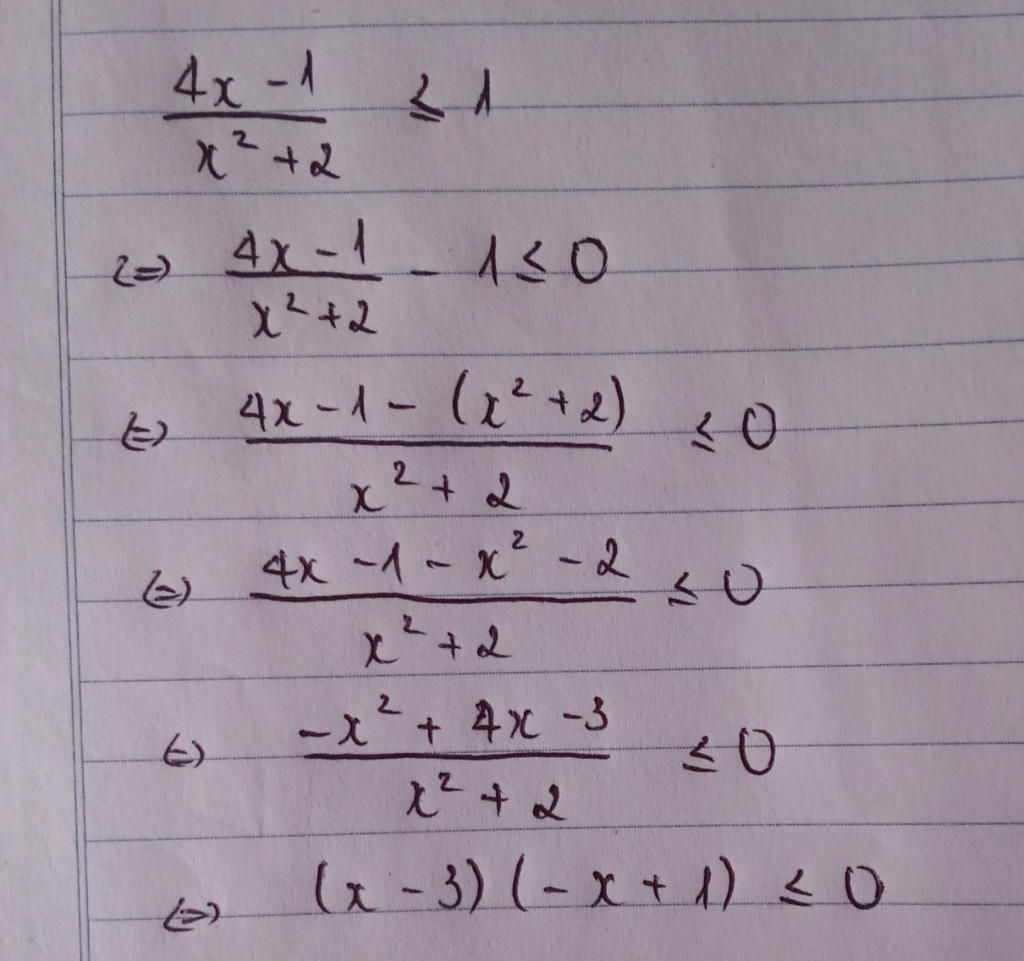 (4x - 1)/(x² + 2) ≤ 1
⇔ (4x - 1)/(x² + 2) - 1 ≤ 0
⇔ (4x - 1 - (x² + 2))/(x² + 2) ≤ 0
⇔ (4x - 1 - x² - 2)/(x² + 2) ≤ 0
⇔ (-x² + 4x - 3)/(x² + 2) ≤ 0
⇔ (x - 3)(-x + 1) ≤ 0